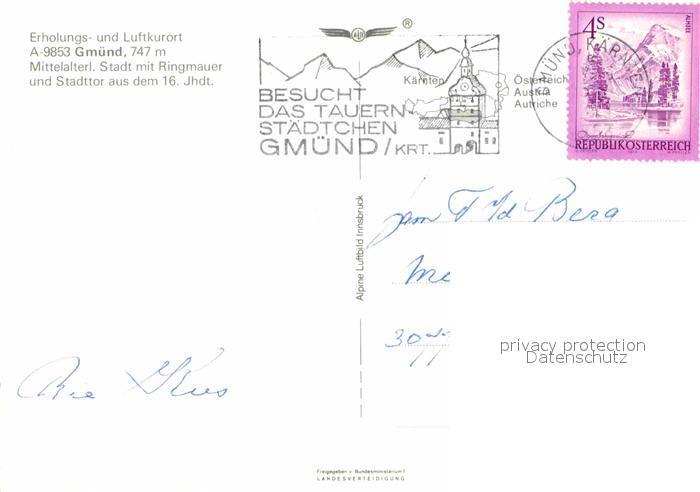 Erholungs- und Luftkurort
A-9853 Gmünd, 747 m
Mittelalterl. Stadt mit Ringmauer
und Stadttor aus dem 16. Jhdt.
®
Kärnten
Österreich
Austria
Autriche
BESUCHT
DAS TAUERN-
STÄDTCHEN
GMÜND/KRT.
GMÜND, KÄRNTEN
4S
ALMSEE
REPUBLIK ÖSTERREICH
Alpine Luftbild Innsbruck
Me
30
privacy protection
Datenschutz
Freigegeben v. Bundesministerium f.
LANDESVERTEIDIGUNG